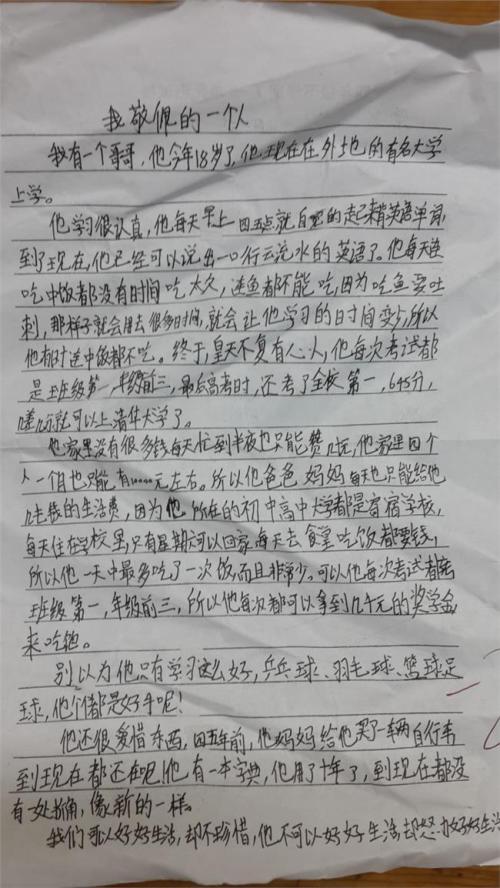 我敬佩的一个人
我有一个哥哥，他今年18岁了，他现在在外地的有名大学
上学。
他学习很认真，他每天早上四五点就自觉的起来背英语单词，
到了现在，他已经可以说出一口行云流水的英语了。他每天连
吃中饭都没有时间吃太久，连鱼都不能吃，因为吃鱼要吐
刺，那样子就会用去很多时间，就会让他学习的日时间变少，所以
他有时连中饭都不吃。终于，皇天不复有心人，他每次考试都
是班级第一，年级前三，最后高考时，还考了全校第一，645分，
差几分就可以上清华大学了。
他家里没有很多钱每天忙到半夜也只能赞几元，他家里四个
人一个月也只能有10000元左右。所以他爸爸妈妈每天也只能给他
几元钱的生活费，因为他所在的初中高中大学都是寄宿学校，
每天住在学校里，只有星期天可以回家，每天去食堂吃饭都要钱，
所以他一天中最多吃了一次饭，而且非常少。可以他每次考试都是
班级第一，年级前三，所以他每次都可以拿到几千元的奖学金
来吃饱。
别以为他只有学习这么好，乒乓球、羽毛球、篮球足
球，他个个都是好手呢！
他还很爱惜东西，四五年前，他妈妈给他买了一辆自行车
到现在都还在呢！他有一本字典，他用了十年了，到现在都没
有一处折角，像新的一样。
我们可以好好生活，却不珍惜，他不可以好好生活却想办好好生活